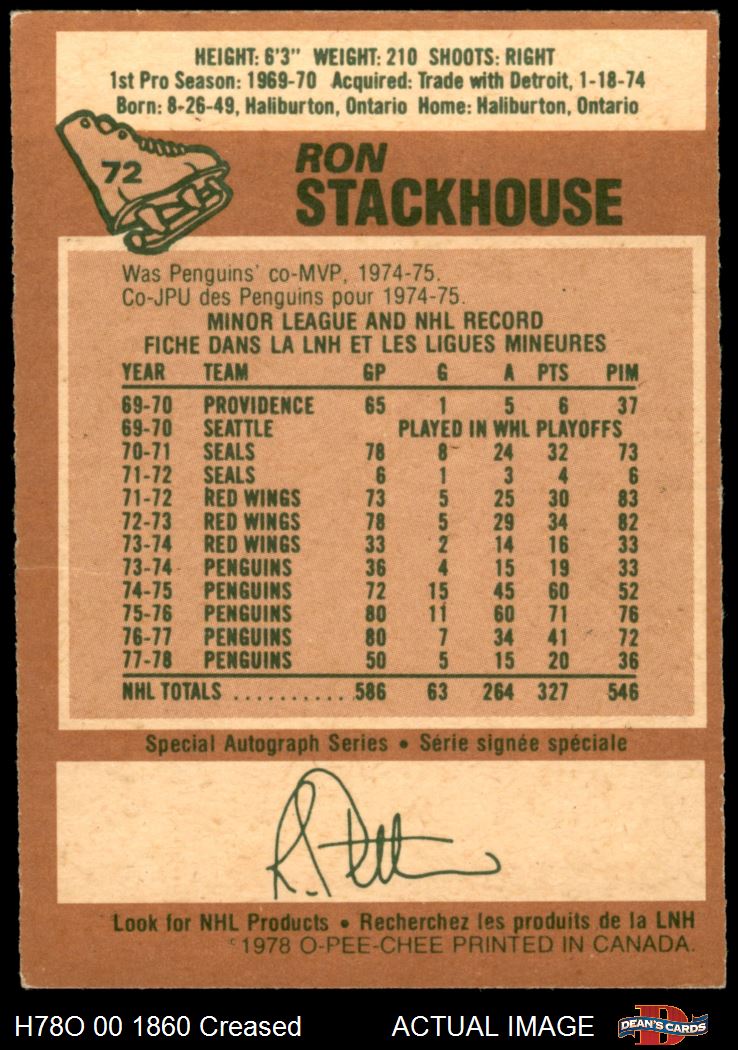 HEIGHT: 6'3" WEIGHT: 210 SHOOTS: RIGHT
1st Pro Season: 1969-70 Acquired: Trade with Detroit, 1-18-74
Born: 8-26-49, Haliburton, Ontario Home: Haliburton, Ontario
72
RON
STACKHOUSE
Was Penguins' co-MVP, 1974-75.
Co-JPU des Penguins pour 1974-75.
MINOR LEAGUE AND NHL RECORD
FICHE DANS LA LNH ET LES LIGUES MINEURES
YEAR TEAM GP G A PTS PIM
69-70 PROVIDENCE 65 1 5 6 37
69-70 SEATTLE PLAYED IN WHL PLAYOFFS
70-71 SEALS 78 8 24 32 73
71-72 SEALS 6 1 3 4 6
71-72 RED WINGS 73 5 25 30 83
72-73 RED WINGS 78 5 29 34 82
73-74 RED WINGS 33 2 14 16 33
73-74 PENGUINS 36 4 15 19 33
74-75 PENGUINS 72 15 45 60 52
75-76 PENGUINS 80 11 60 71 76
76-77 PENGUINS 80 7 34 41 72
77-78 PENGUINS 50 5 15 20 36
NHL TOTALS ............586 63 264 327 546
Special Autograph Series • Série signée spéciale
Look for NHL Products • Recherchez les produits de la LNH
©1978 O-PEE-CHEE PRINTED IN CANADA.
H78O 00 1860 Creased ACTUAL IMAGE DEAN'S CARDS